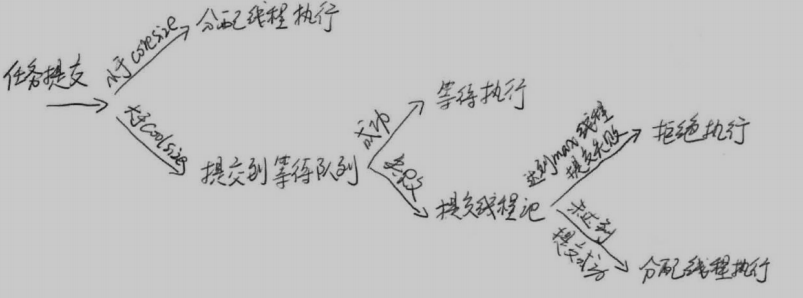 任务提交
小于coresize
分配线程执行
大于coolsize
提交到等待队列
成功
等待执行
失败
提交线程池
达到max线程
提交失败
拒绝执行
未达到
提交成功
分配线程执行